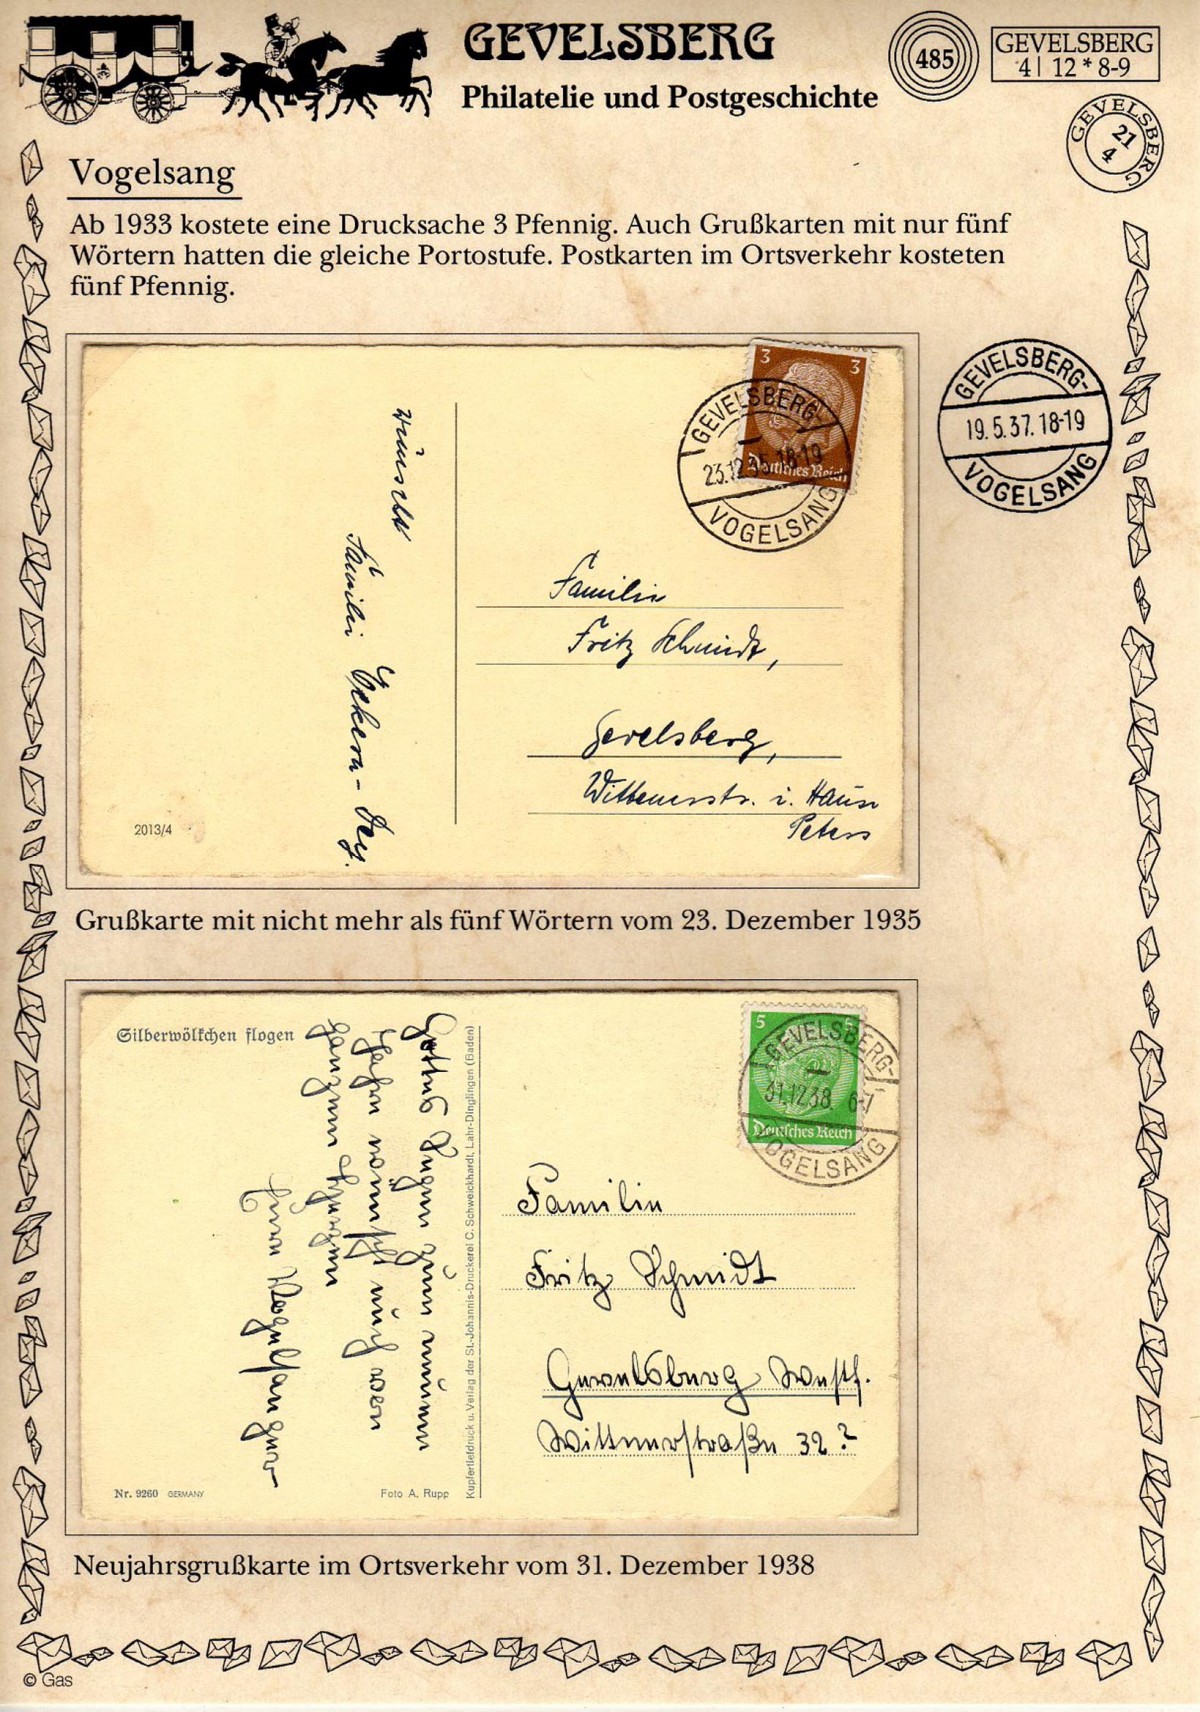 GEVELSBERG
Philatelie und Postgeschichte
485
GEVELSBERG
4| 12 * 8-9
GEVELSBERG
21
4
Vogelsang
Ab 1933 kostete eine Drucksache 3 Pfennig. Auch Grußkarten mit nur fünf
Wörtern hatten die gleiche Portostufe. Postkarten im Ortsverkehr kosteten
fünf Pfennig.
3 3
Deutsches Reich
GEVELSBERG-
23.12.35.18-19
VOGELSANG
GEVELSBERG-
19.5.37.18-19
VOGELSANG
wünscht
Familie
Familie
Fritz Schmidt,
Gevelsberg,
Wittenerstr. i. Hause
Peters
2013/4
Grußkarte mit nicht mehr als fünf Wörtern vom 23. Dezember 1935
Silberwölkchen flogen
Gottes Segen zum neuen
Jahre wünscht euch von
ganzem Herzen
Frau Vogelsanger
Kupfertiefdruck u. Verlag der St.-Johannis-Druckerei C. Schweickhardt, Lahr-Dinglingen (Baden)
5 5
Deutsches Reich
GEVELSBERG-
31.12.38. 6-7
VOGELSANG
Familie
Fritz Schmidt
Gevelsberg Westf.
Wittenerstraße 32?
Nr. 9260 GERMANY
Foto A. Rupp
Neujahrsgrußkarte im Ortsverkehr vom 31. Dezember 1938
© Gas